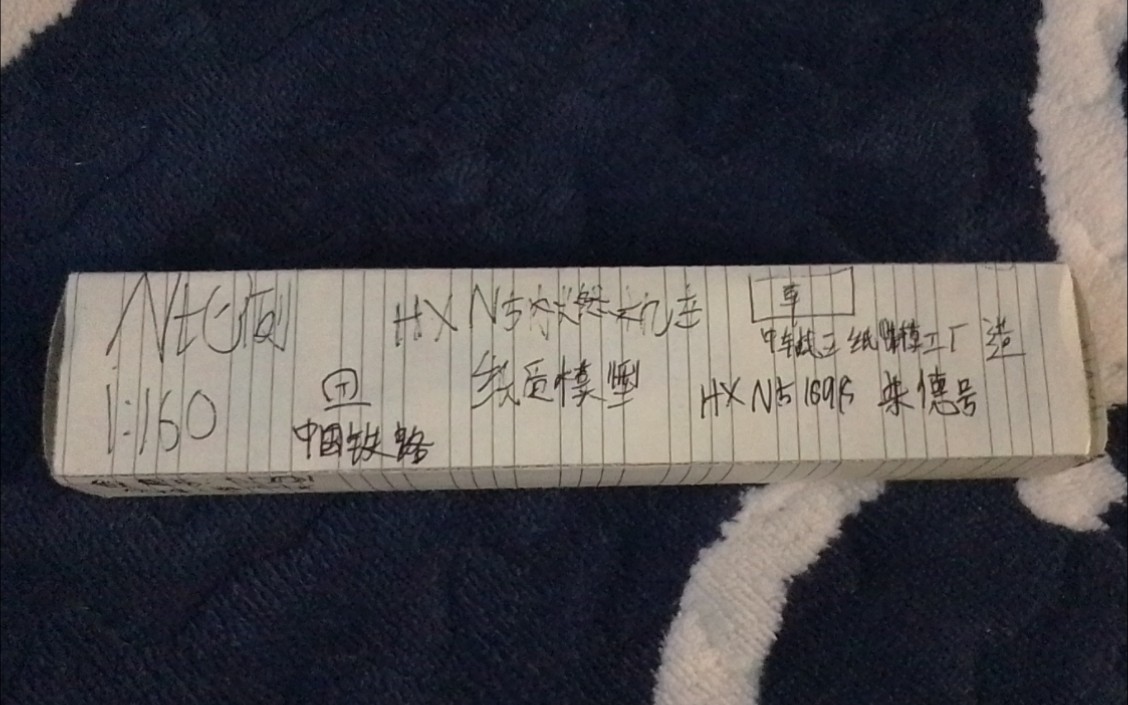 N比例
1:160
中国铁路
HXN5内燃机车
纸质模型
车
纸 模工厂 造
HXN5 朱德号